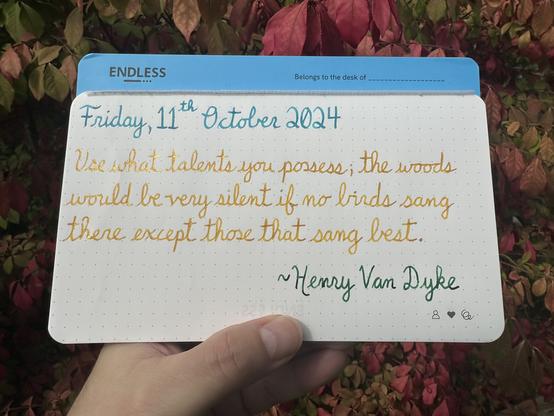 ENDLESS
Belongs to the desk of
Friday, 11th October 2024
Use what talents you possess; the woods
would be very silent if no birds sang
there except those that sang best.
~Henry Van Dyke